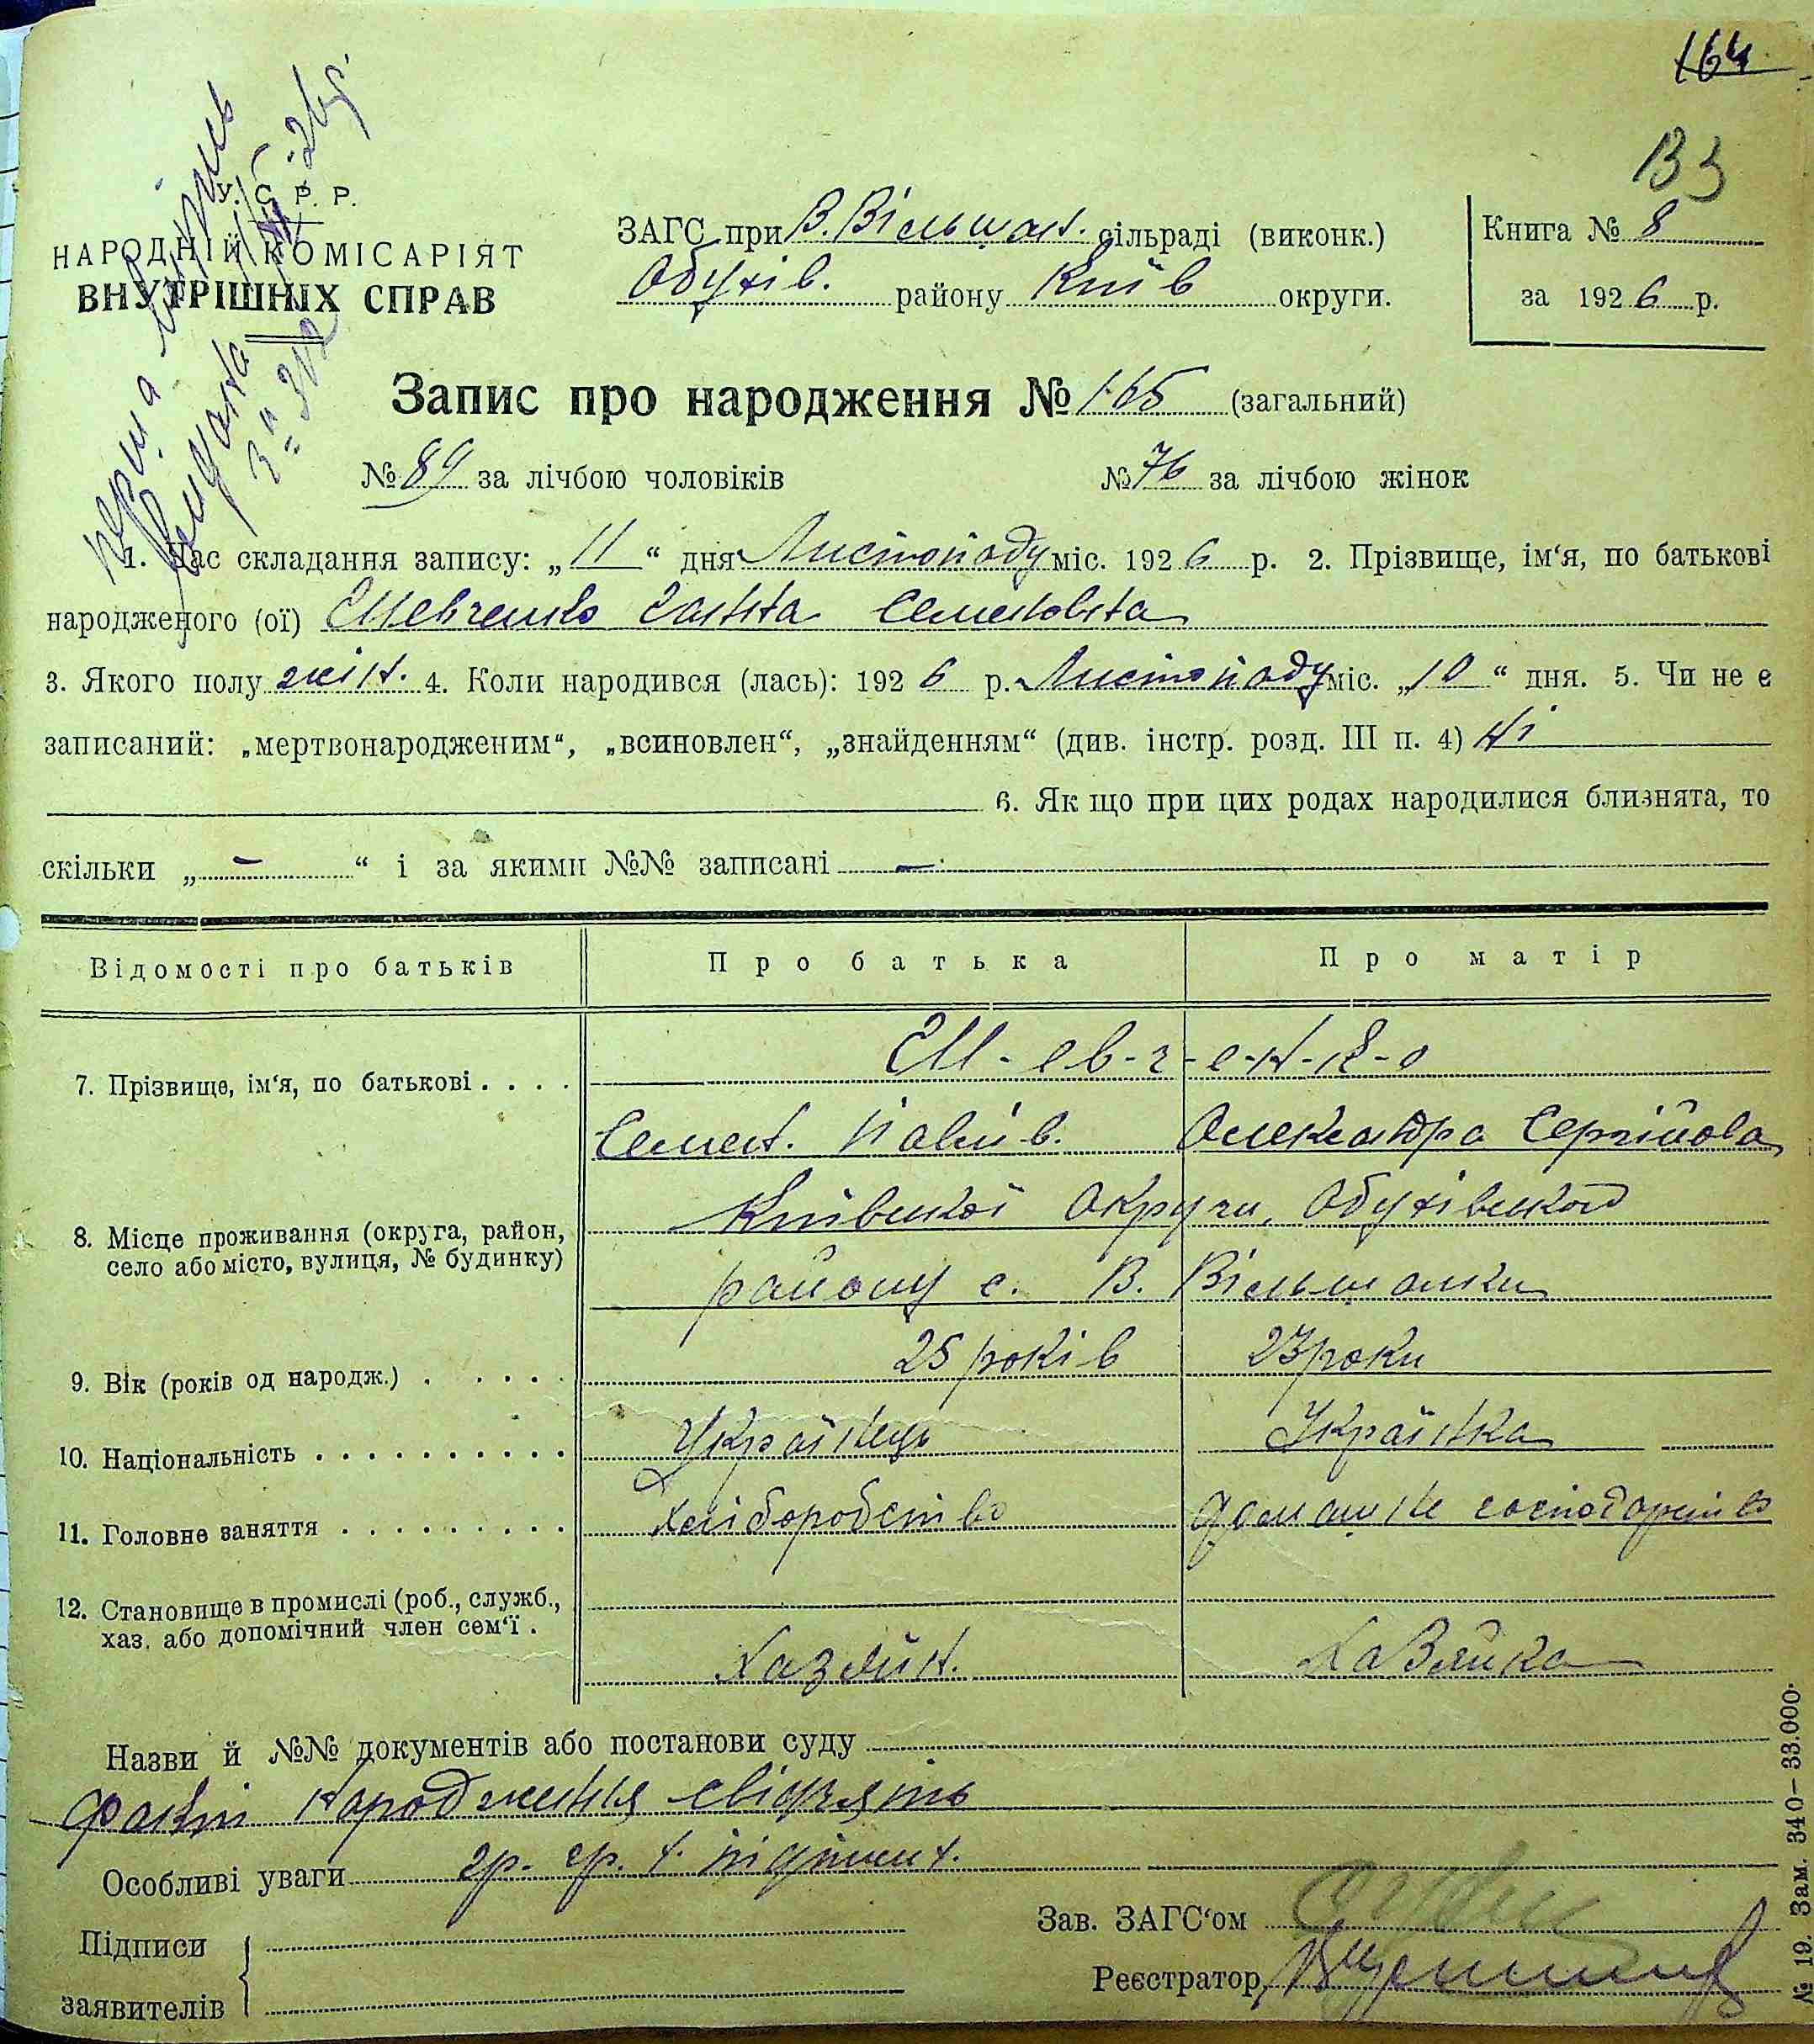 164
133
У. С. Р. Р.
НАРОДНІЙ КОМІСАРІЯТ
ВНУТРІШНІХ СПРАВ
ЗАГС при В. Вільшан. сільраді (виконк.)
Обухів. району Київ округи.
Книга № 8
за 1926 р.
Запис про народження № 165 (загальний)
№ 89 за лічбою чоловіків № 76 за лічбою жінок
1. Час складання запису: „11“ дня Листопаду міс. 1926 р. 2. Прізвище, ім‘я, по батькові
народженого (ої) Шевченко Ганна Семеновна
3. Якого полу жін. 4. Коли народився (лась): 1926 р. Листопаду міс. „10“ дня. 5. Чи не є
записаний: „мертвонародженим“, „всиновлен“, „знайденням“ (див. інстр. розд. III п. 4) ні
6. Як що при цих родах народилися близнята, то
скільки „ — “ і за якими №№ записані —
Відомості про батьків Про батька Про матір
7. Прізвище, ім‘я, по батькові . . . . Ш-ев-ч-е-н-к-о
Семен. Павлів. Олександра Сергійова
8. Місце проживання (округа, район, село або місто, вулиця, № будинку) Київської Округи, Обухівського
району с. В. Вільшанки
9. Вік (років од народж.) . . . . . 25 років 23 роки
10. Національність . . . . . . . . . . Українець Українка
11. Головне заняття . . . . . . . . . Хліборобство Домашнє господарство
12. Становище в промислі (роб., служб.,
хаз. або допомічний член сем‘ї . Хазяїн. Хазяйка
Назви й №№ документів або постанови суду
Факт народження свідчать
Особливі уваги гр. гр.
Підписи
заявителів
Зав. ЗАГС‘ом
Реєстратор
№ 19. Зам. 340–33.000.